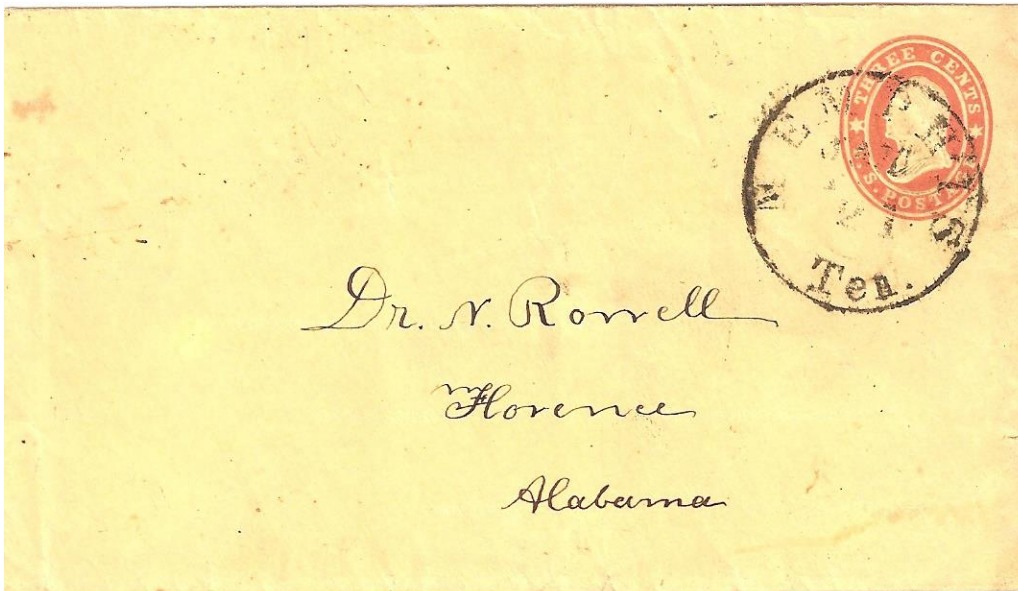 THREE CENTS
U.S. POSTAGE
MEMPHIS
Ten.
Dr. N. Rowell
Florence
Alabama